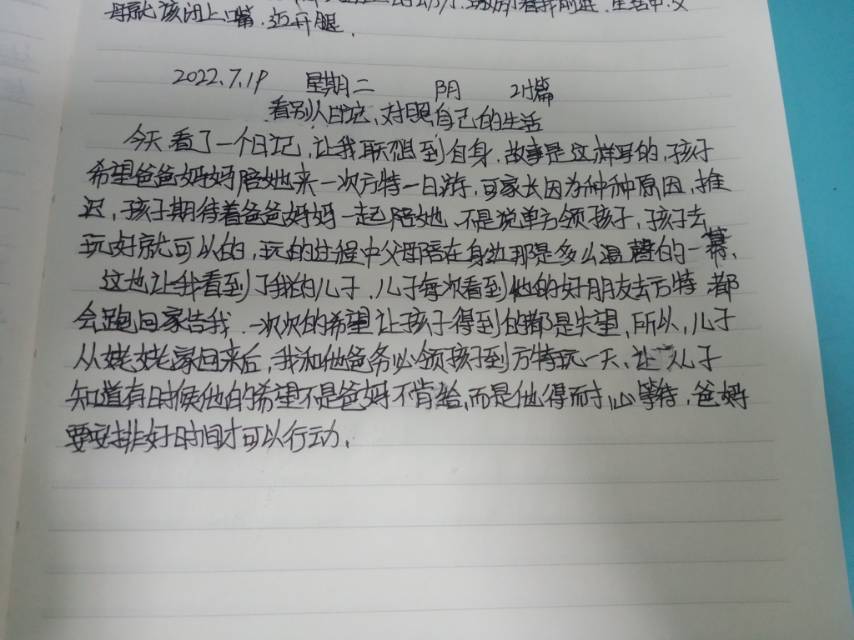 母就该闭上嘴,迈开腿.
2022.7.19 星期二 阴 21篇
看别人日记,对照自己的生活
今天看了一个日记,让我联想到自身.故事是这样写的,孩子
希望爸爸妈妈陪她来一次方特一日游.可家长因为种种原因,推
迟,孩子期待着爸爸妈妈一起陪她.不是说单方领孩子,孩子去
玩好就可以的,玩的过程中父母陪在身边那是多么温馨的一幕.
这也让我看到了我的儿子.儿子每次看到他的好朋友去方特都
会跑回家告我.一次次的希望让孩子得到的都是失望,所以,儿子
从姥姥家回来后,我和他爸务必领孩子到方特玩一天,让儿子
知道有时候他的希望不是爸妈不肯给,而是他得耐心等待,爸妈
要安排好时间才可以行动.